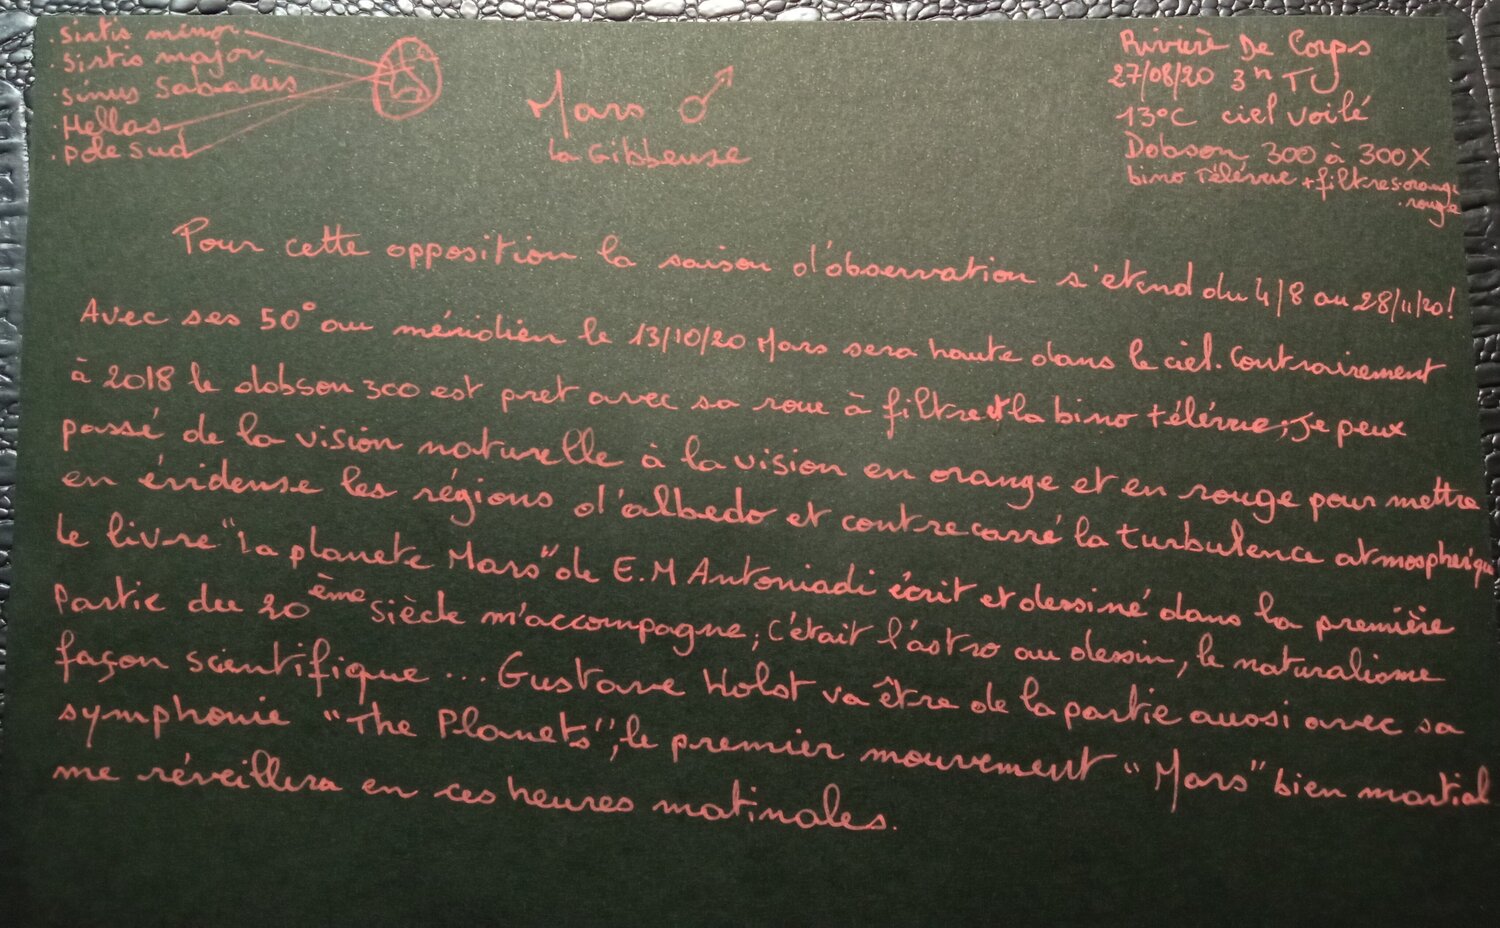 . Sirtis minor
. Sirtis major
. Sinus Sabaeus
. Hellas
. pôle sud
Mars ♂
la Gibbeuse
Rivière De Corps
27/08/20 3h TU
13°C ciel voilé
Dobson 300 à 300X
bino Télévue + filtres orange
. rouge
Pour cette opposition la saison d'observation s'etend du 4/8 au 28/11/20!
Avec ses 50° au méridien le 13/10/20 Mars sera haute dans le ciel. Contrairement
à 2018 le dobson 300 est pret avec sa roue à filtre et la bino télévue; je peux
passé de la vision naturelle à la vision en orange et en rouge pour mettre
en évidense les régions d'albedo et contrecarré la turbulence atmosphériqu
le livre "la planete Mars" de E.M Antoniadi écrit et dessiné dans la première
partie du 20ème siècle m'accompagne; c'était l'astro au dessin, le naturalisme
façon scientifique ... Gustave Holst va être de la partie aussi avec sa
symphonie "The Planets"; le premier mouvement "Mars" bien martial
me réveillera en ces heures matinales.